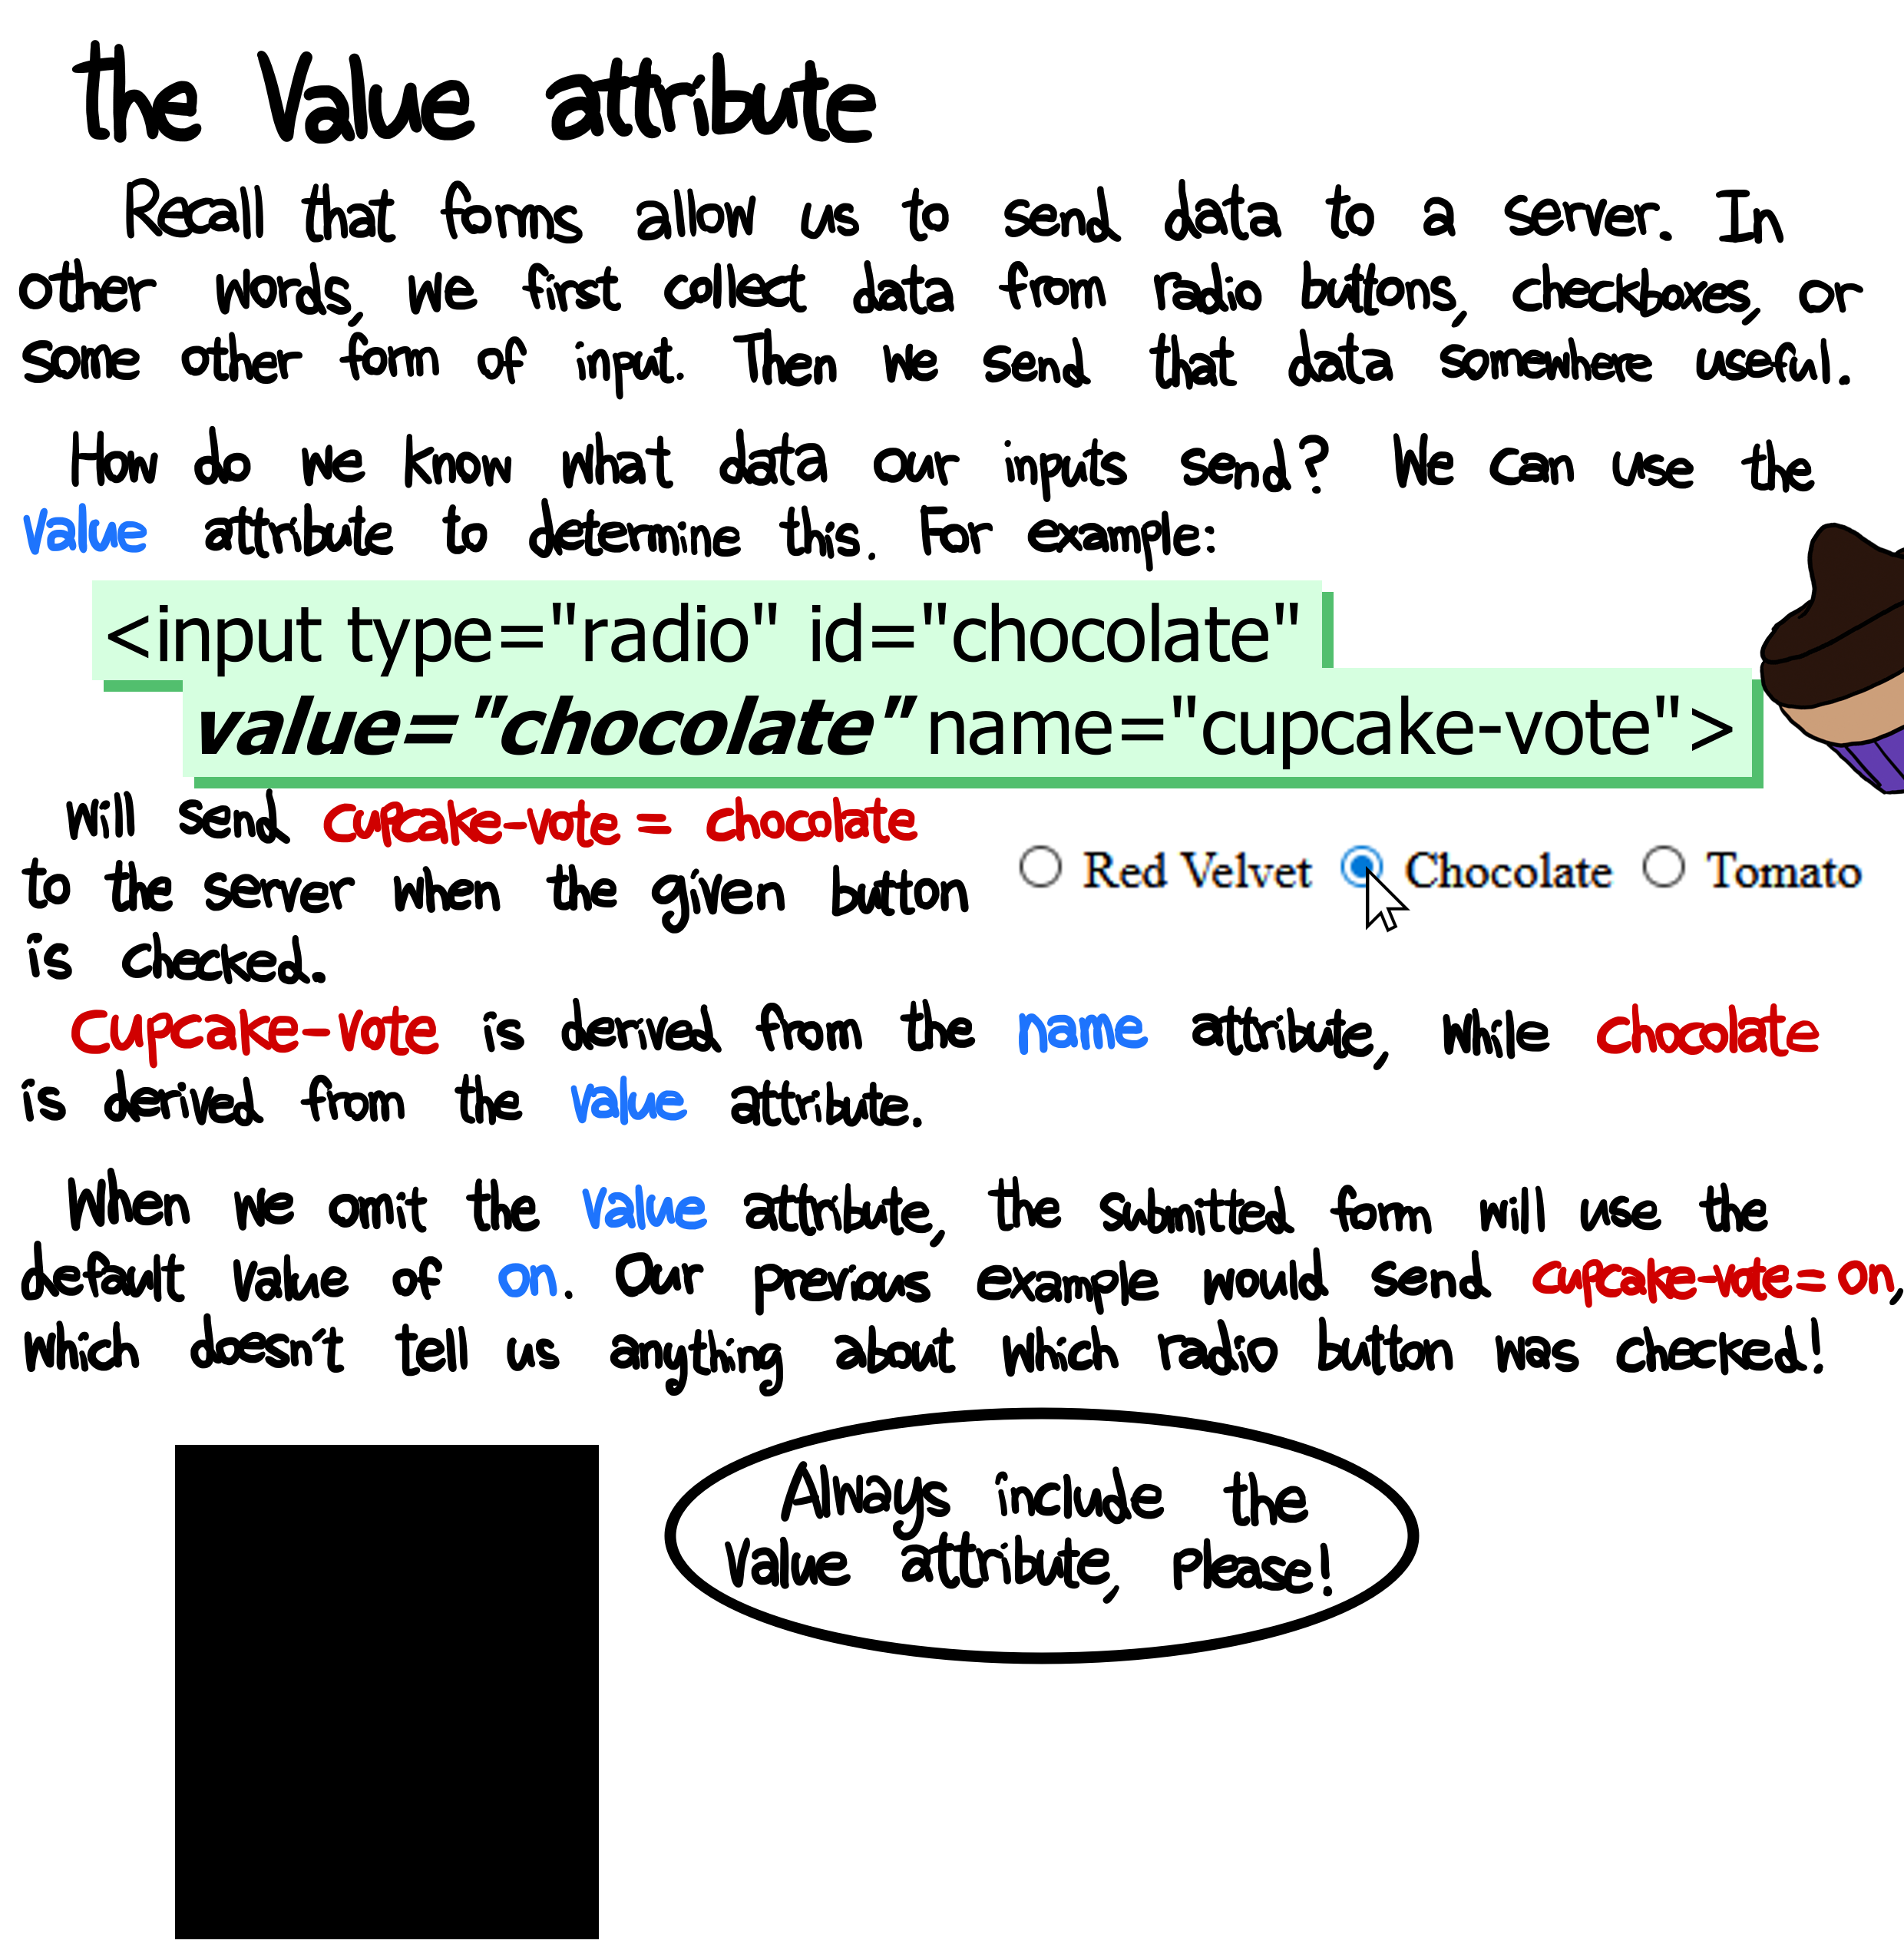 the Value attribute
Recall that forms allow us to send data to a server. In
other words, we first collect data from radio buttons, checkboxes, or
some other form of input. Then we send that data somewhere useful.
How do we know what data our inputs send? We can use the
value attribute to determine this. For example:
<input type="radio" id="chocolate"
value="chocolate" name="cupcake-vote">
Will send cupcake-vote = chocolate
to the server when the given button
is checked.
Red Velvet Chocolate Tomato
Cupcake-vote is derived from the name attribute, while chocolate
is derived from the value attribute.
When we omit the value attribute, the submitted form will use the
default value of on. Our previous example would send cupcake-vote=on,
which doesn't tell us anything about which radio button was checked!
Always include the
value attribute, please!